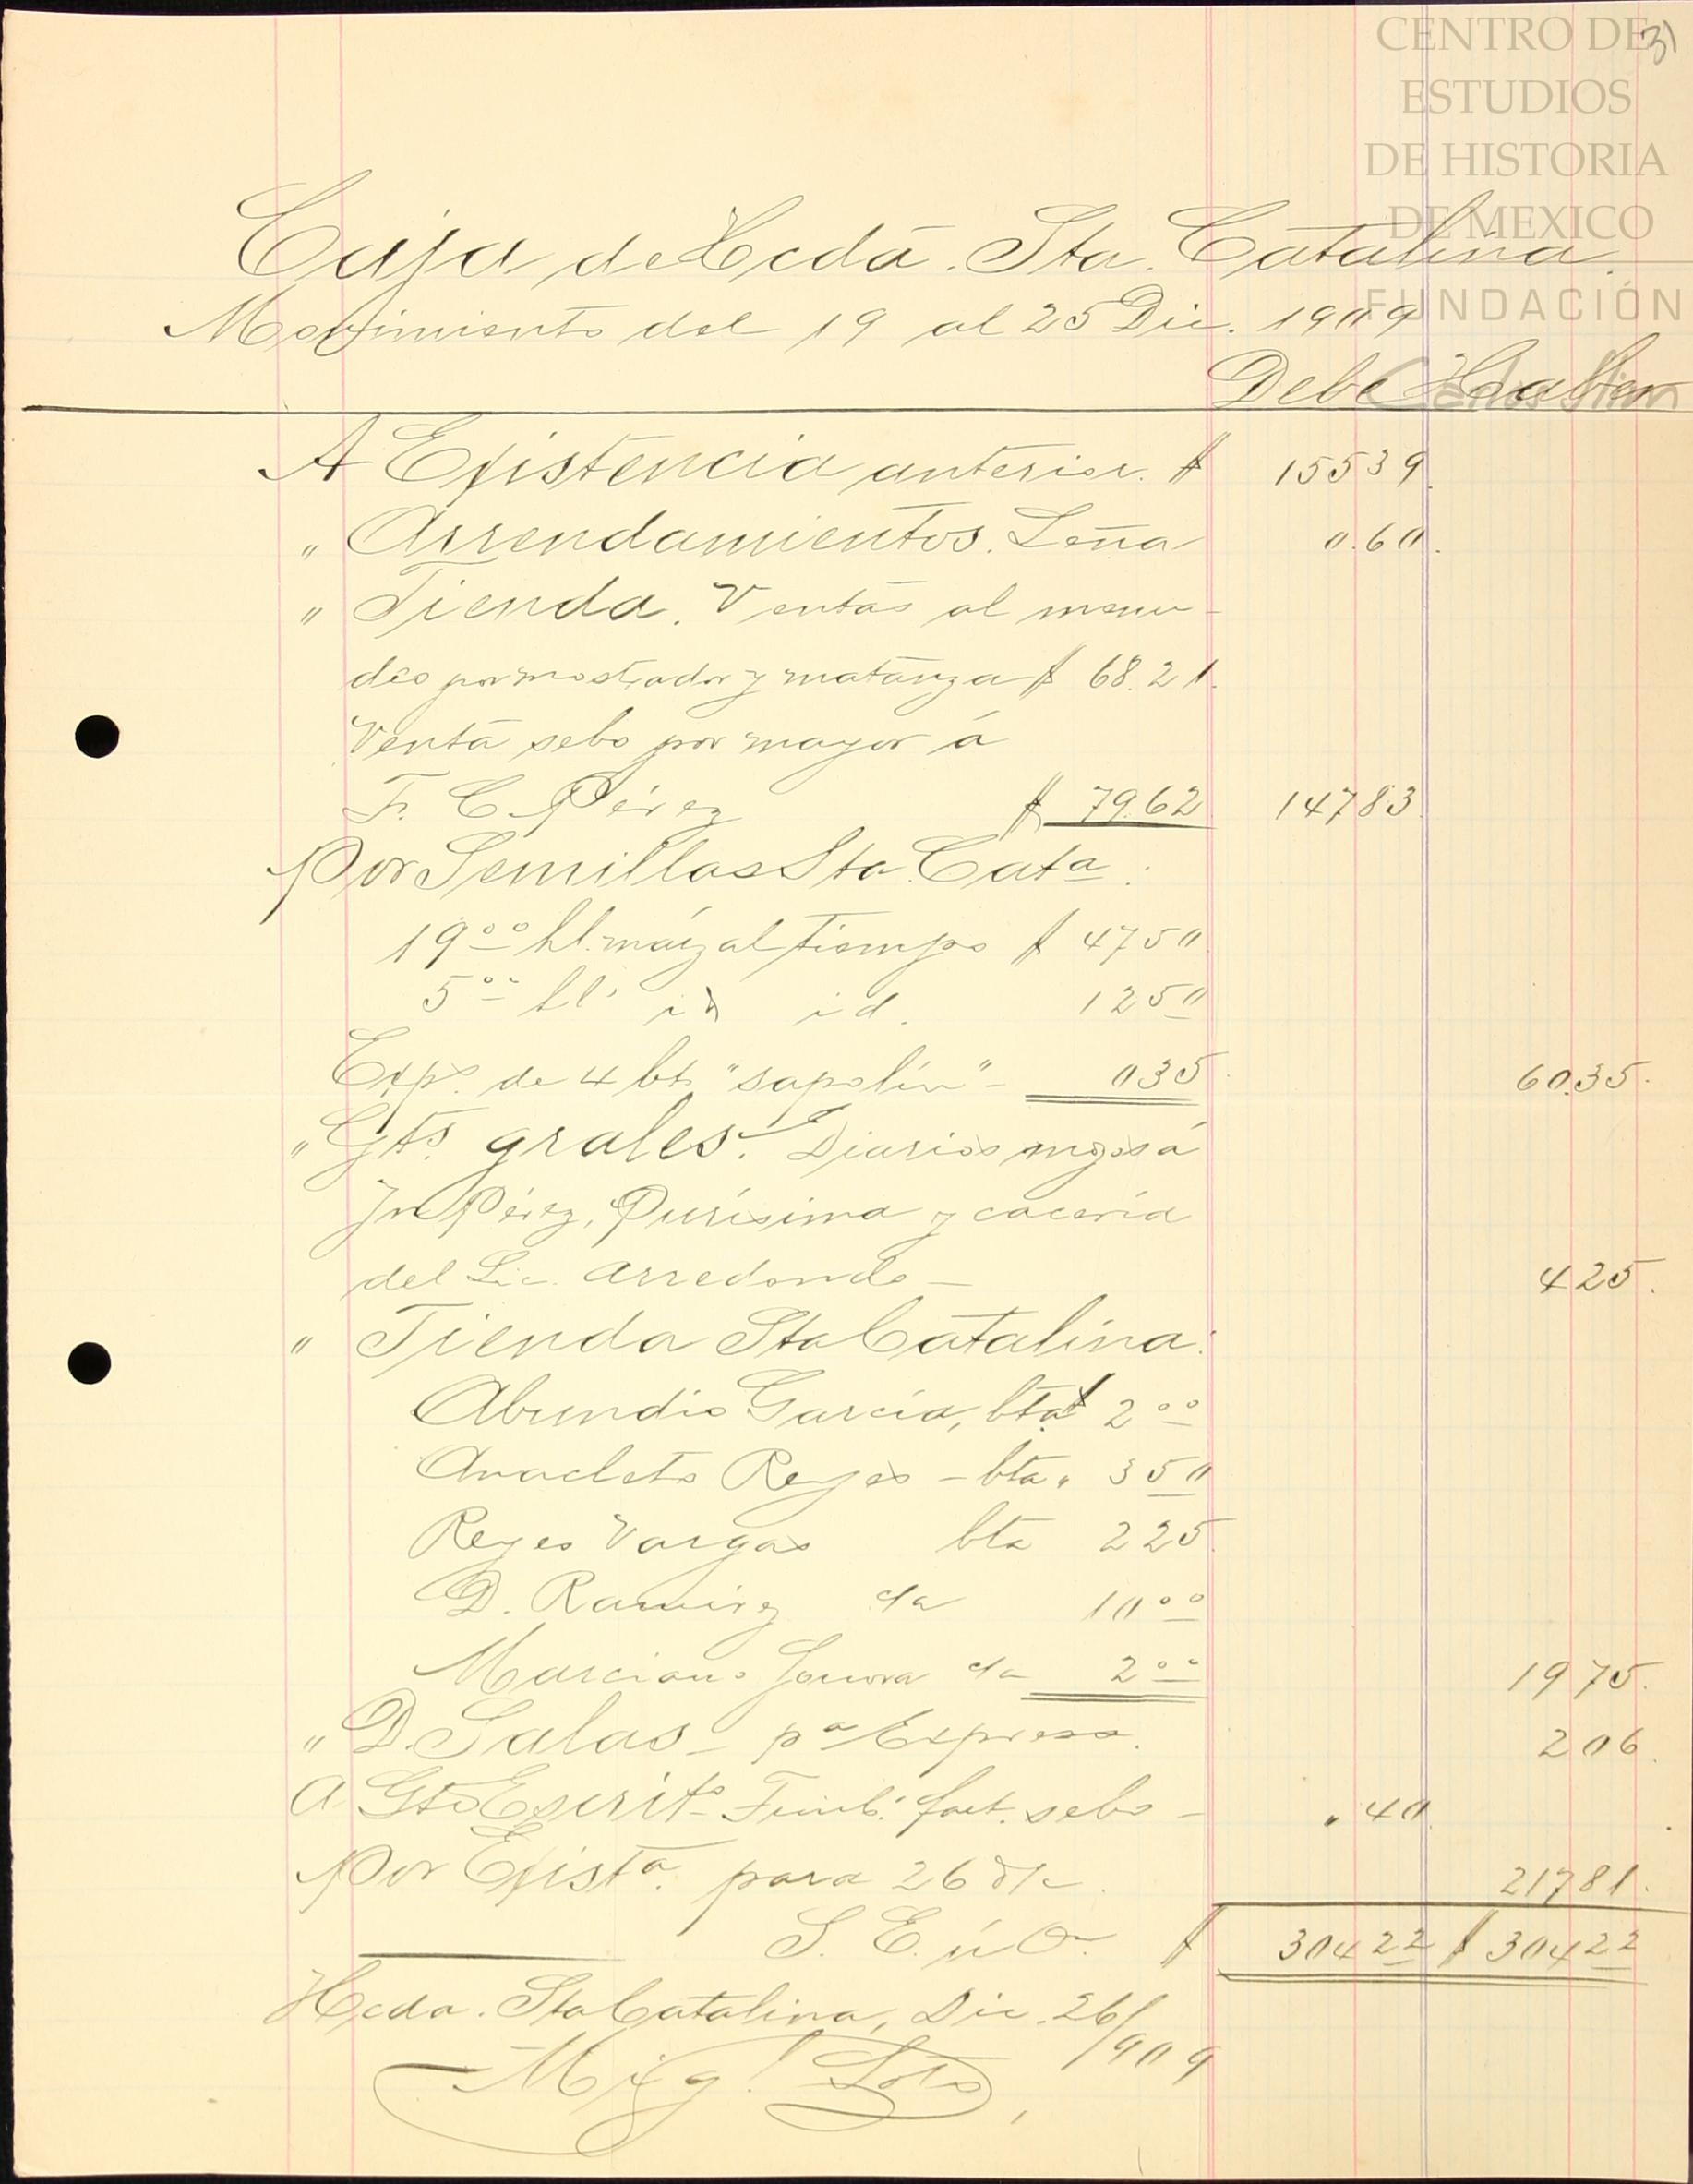 CENTRO DE
ESTUDIOS
DE HISTORIA
DE MEXICO
FUNDACIÓN
Carlos Slim
31
Caja de Hcda. Sta. Catalina.
Movimiento del 19 al 25 Dic. 1909
Debe Haber
A Existencia anterior. $ 15539.
" Arrendamientos. Leña 0.60.
" Tienda. Ventas al menu-
deo por mostrador y matanza $ 68.21.
Venta sebo por mayor á
F. C. Pérez $ 79.62 14783.
Por Semillas Sta. Cata:
19oo hl. maíz al tiempo $ 4750
5oo hl. id id. 1250
Exp. de 4 bts "sapolín" - 035. 60.35.
" Gts. grales. Diarios mozos á
Jn Pérez, Purísima y cacería
del Lic. Arredondo - 425.
" Tienda Sta Catalina:
Abundio García, bta $ 2oo
Anacleto Reyes - bta " 350
Reyes Vargas bta 225.
D. Ramirz da 10oo
Marciano da 2oo 1975.
" D. Salas - pa Express. 206.
A Gts Escrito Timb. fact. sebo - " 40.
Por Exista. para 26 21781.
S. E. ú O. $ 30422 $ 30422
Hcda. Sta Catalina, Dic. 26/909
Migl Soto